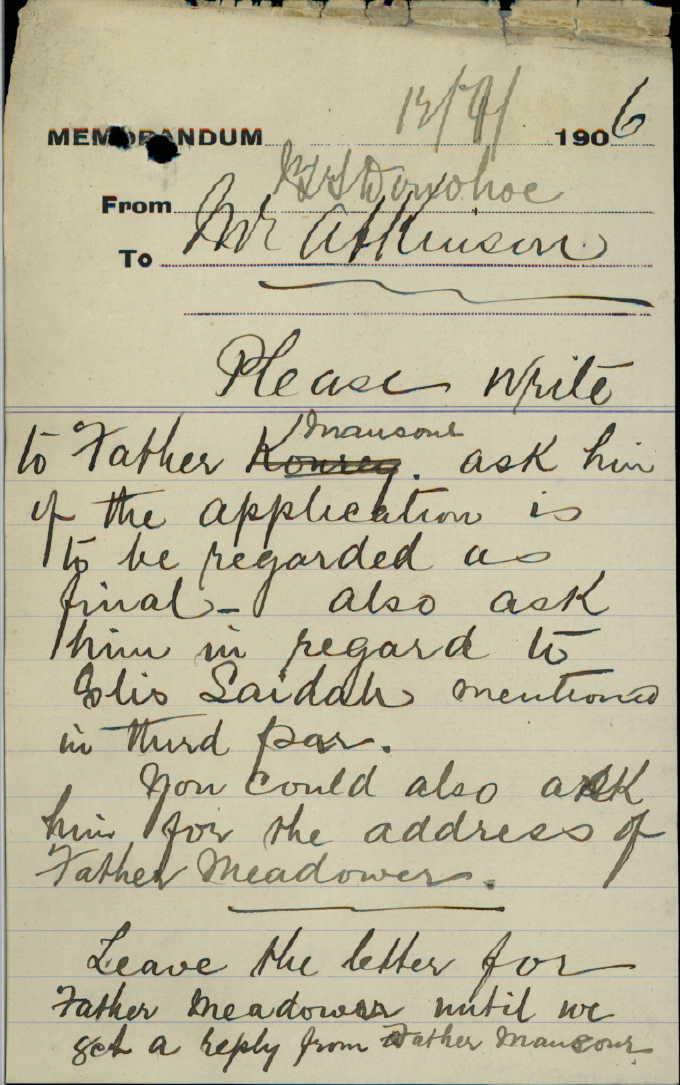 12/9/
MEMORANDUM 1906
From Donohoe
To Mr Atkinson
Please write
to Father Konrey Mansour. ask him
if the application is
to be regarded as
final - also ask
him in regard to
Elis Saidah mentioned
in third par.
You could also ask
him for the address of
Father Meadower.
Leave the letter for
Father Meadower until we
get a reply from Father Mansour